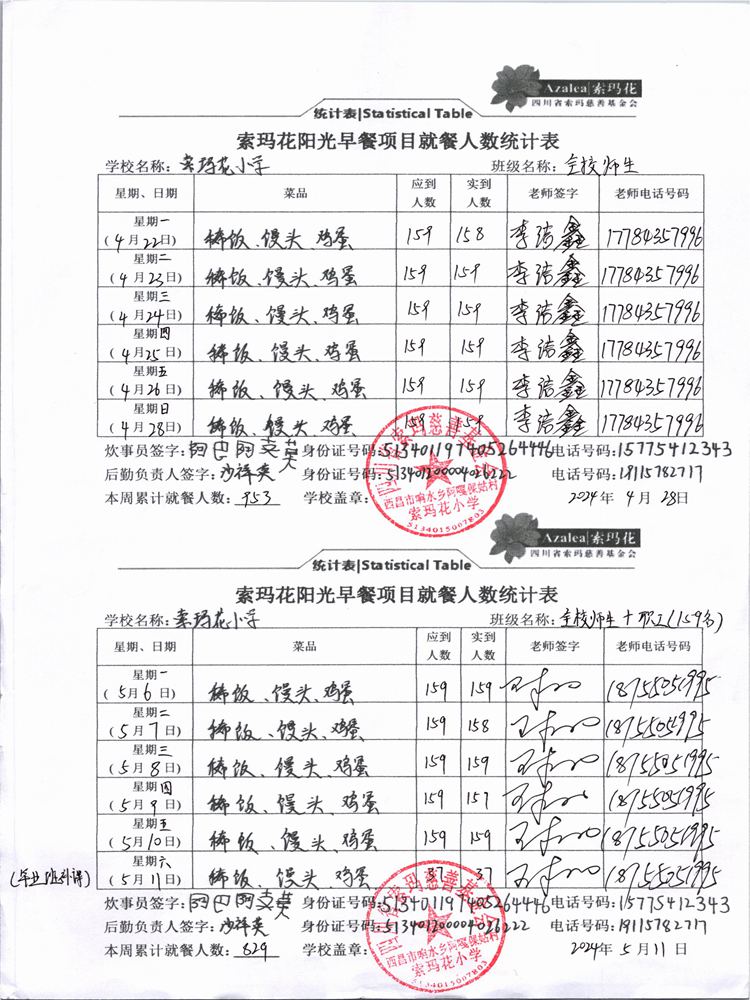 Azalea|索玛花
四川省索玛慈善基金会
统计表|Statistical Table
索玛花阳光早餐项目就餐人数统计表
学校名称：索玛花小学 班级名称：全校师生
星期、日期 菜品 应到人数 实到人数 老师签字 老师电话号码
星期一 (4月22日) 稀饭、馒头、鸡蛋 159 158 李洁鑫 17784357996
星期二 (4月23日) 稀饭、馒头、鸡蛋 159 159 李洁鑫 17784357996
星期三 (4月24日) 稀饭、馒头、鸡蛋 159 159 李洁鑫 17784357996
星期四 (4月25日) 稀饭、馒头、鸡蛋 159 159 李洁鑫 17784357996
星期五 (4月26日) 稀饭、馒头、鸡蛋 159 159 李洁鑫 17784357996
星期日 (4月28日) 稀饭、馒头、鸡蛋 159 159 李洁鑫 17784357996
炊事员签字：阿巴阿支英 身份证号码：513401197405264446 电话号码：15775412343
后勤负责人签字：沙祥英 身份证号码：513401200004026222 电话号码：19115782717
本周累计就餐人数：953 学校盖章： 2024年4月28日
四川省索玛慈善基金会
西昌市响水乡阿嘎保姑村
索玛花小学
5134015007803
Azalea|索玛花
四川省索玛慈善基金会
统计表|Statistical Table
索玛花阳光早餐项目就餐人数统计表
学校名称：索玛花小学 班级名称：全校师生+职工(159名)
星期、日期 菜品 应到人数 实到人数 老师签字 老师电话号码
星期一 (5月6日) 稀饭、馒头、鸡蛋 159 159 18755051995
星期二 (5月7日) 稀饭、馒头、鸡蛋 159 158 18755051995
星期三 (5月8日) 稀饭、馒头、鸡蛋 159 159 18755051995
星期四 (5月9日) 稀饭、馒头、鸡蛋 159 157 18755051995
星期五 (5月10日) 稀饭、馒头、鸡蛋 159 159 18755051995
(毕业班补课) 星期六 (5月11日) 稀饭、馒头、鸡蛋 37 37 18755051995
炊事员签字：阿巴阿支英 身份证号码：513401197405264446 电话号码：15775412343
后勤负责人签字：沙祥英 身份证号码：513401200004026222 电话号码：19115782717
本周累计就餐人数：829 学校盖章： 2024年5月11日
四川省索玛慈善基金会
西昌市响水乡阿嘎保姑村
索玛花小学
5134015007803